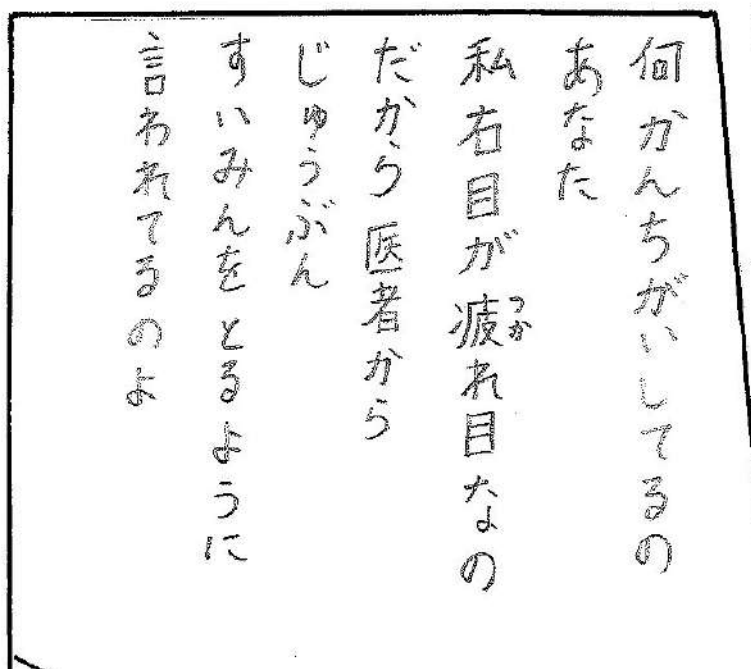 何かんちがいしてるの
あなた
私右目が疲れ目なの
つか
だから医者から
じゅうぶん
すいみんをとるように
言われてるのよ